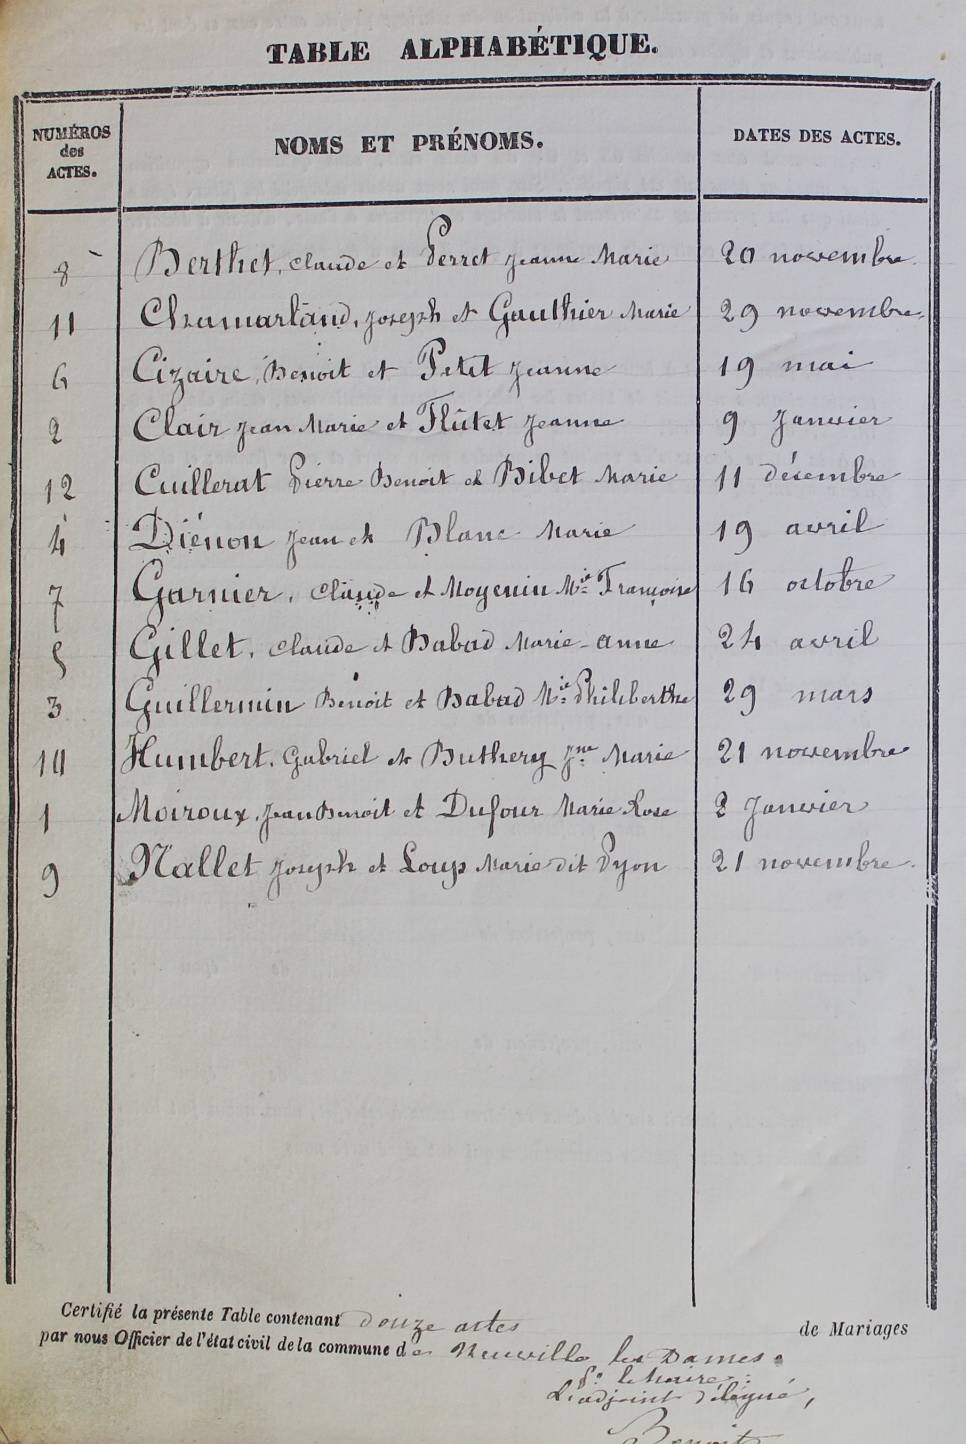 TABLE ALPHABÉTIQUE.
NUMÉROS des ACTES. NOMS ET PRÉNOMS. DATES DES ACTES.
8 Berthet, Claude et Perret Jeanne Marie 20 novembre
11 Chamarland, Joseph et Gauthier Marie 29 novembre
6 Cizaire, Benoit et Petit Jeanne 19 mai
2 Clair Jean Marie et Flûtet Jeanne 9 Janvier
12 Cuillerat Pierre Benoit et Bibet Marie 11 décembre
4 Diénon Jean et Blanc Marie 19 avril
7 Garnier, Claude et Moyenin Mie Françoise 16 octobre
5 Gillet, Claude et Babad Marie-anne 24 avril
3 Guillermin Benoit et Babad Mie Philiberthe 29 mars
10 Humbert, Gabriel et Buthery Jne Marie 21 novembre
1 Moiroux, Jean Benoit et Dufour Marie Rose 2 Janvier
9 Nallet Joseph et Loup Marie dit Pyon 21 novembre
Certifié la présente Table contenant douze actes de Mariages
par nous Officier de l'état civil de la commune de Neuville les Dames.
Pr le Maire:
L'adjoint délégué,
Benoit